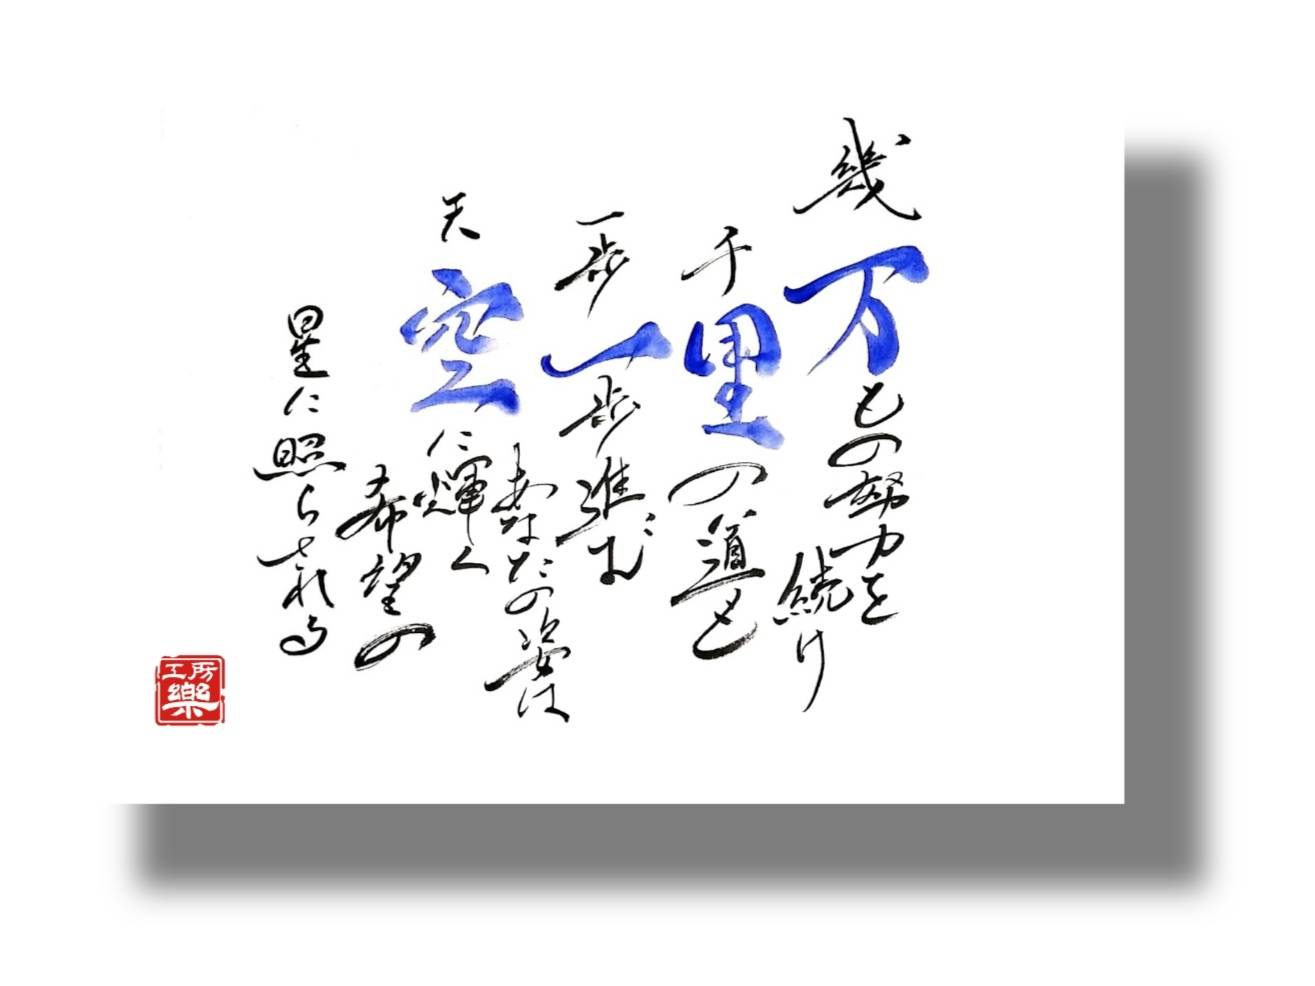 幾万もの努力を
続け
千里の道も
一歩一歩進む
あなたの姿は
天空に輝く
希望の
星に照らされる
工房
樂